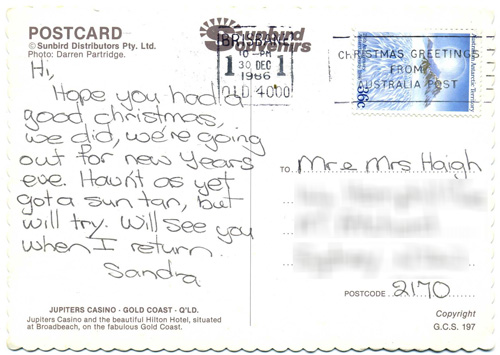 POSTCARD
© Sunbird Distributors Pty. Ltd.
Photo: Darren Partridge.
Sunbird
Souvenirs
BRISBANE
10 - PM
30 DEC
1 1
1986
QLD 4000
CHRISTMAS GREETINGS
FROM
AUSTRALIA POST
Australian Antarctic Territory
36c
Hi,
Hope you had a
good christmas,
we did, we're going
out for new years
eve. Havn't as yet
got a sun tan, but
will try. Will see you
when I return.
Sandra
TO Mr e Mrs Haigh
Sydney
POSTCODE 2170
JUPITERS CASINO · GOLD COAST · Q'LD.
Jupiters Casino and the beautiful Hilton Hotel, situated
at Broadbeach, on the fabulous Gold Coast.
Copyright
G.C.S. 197